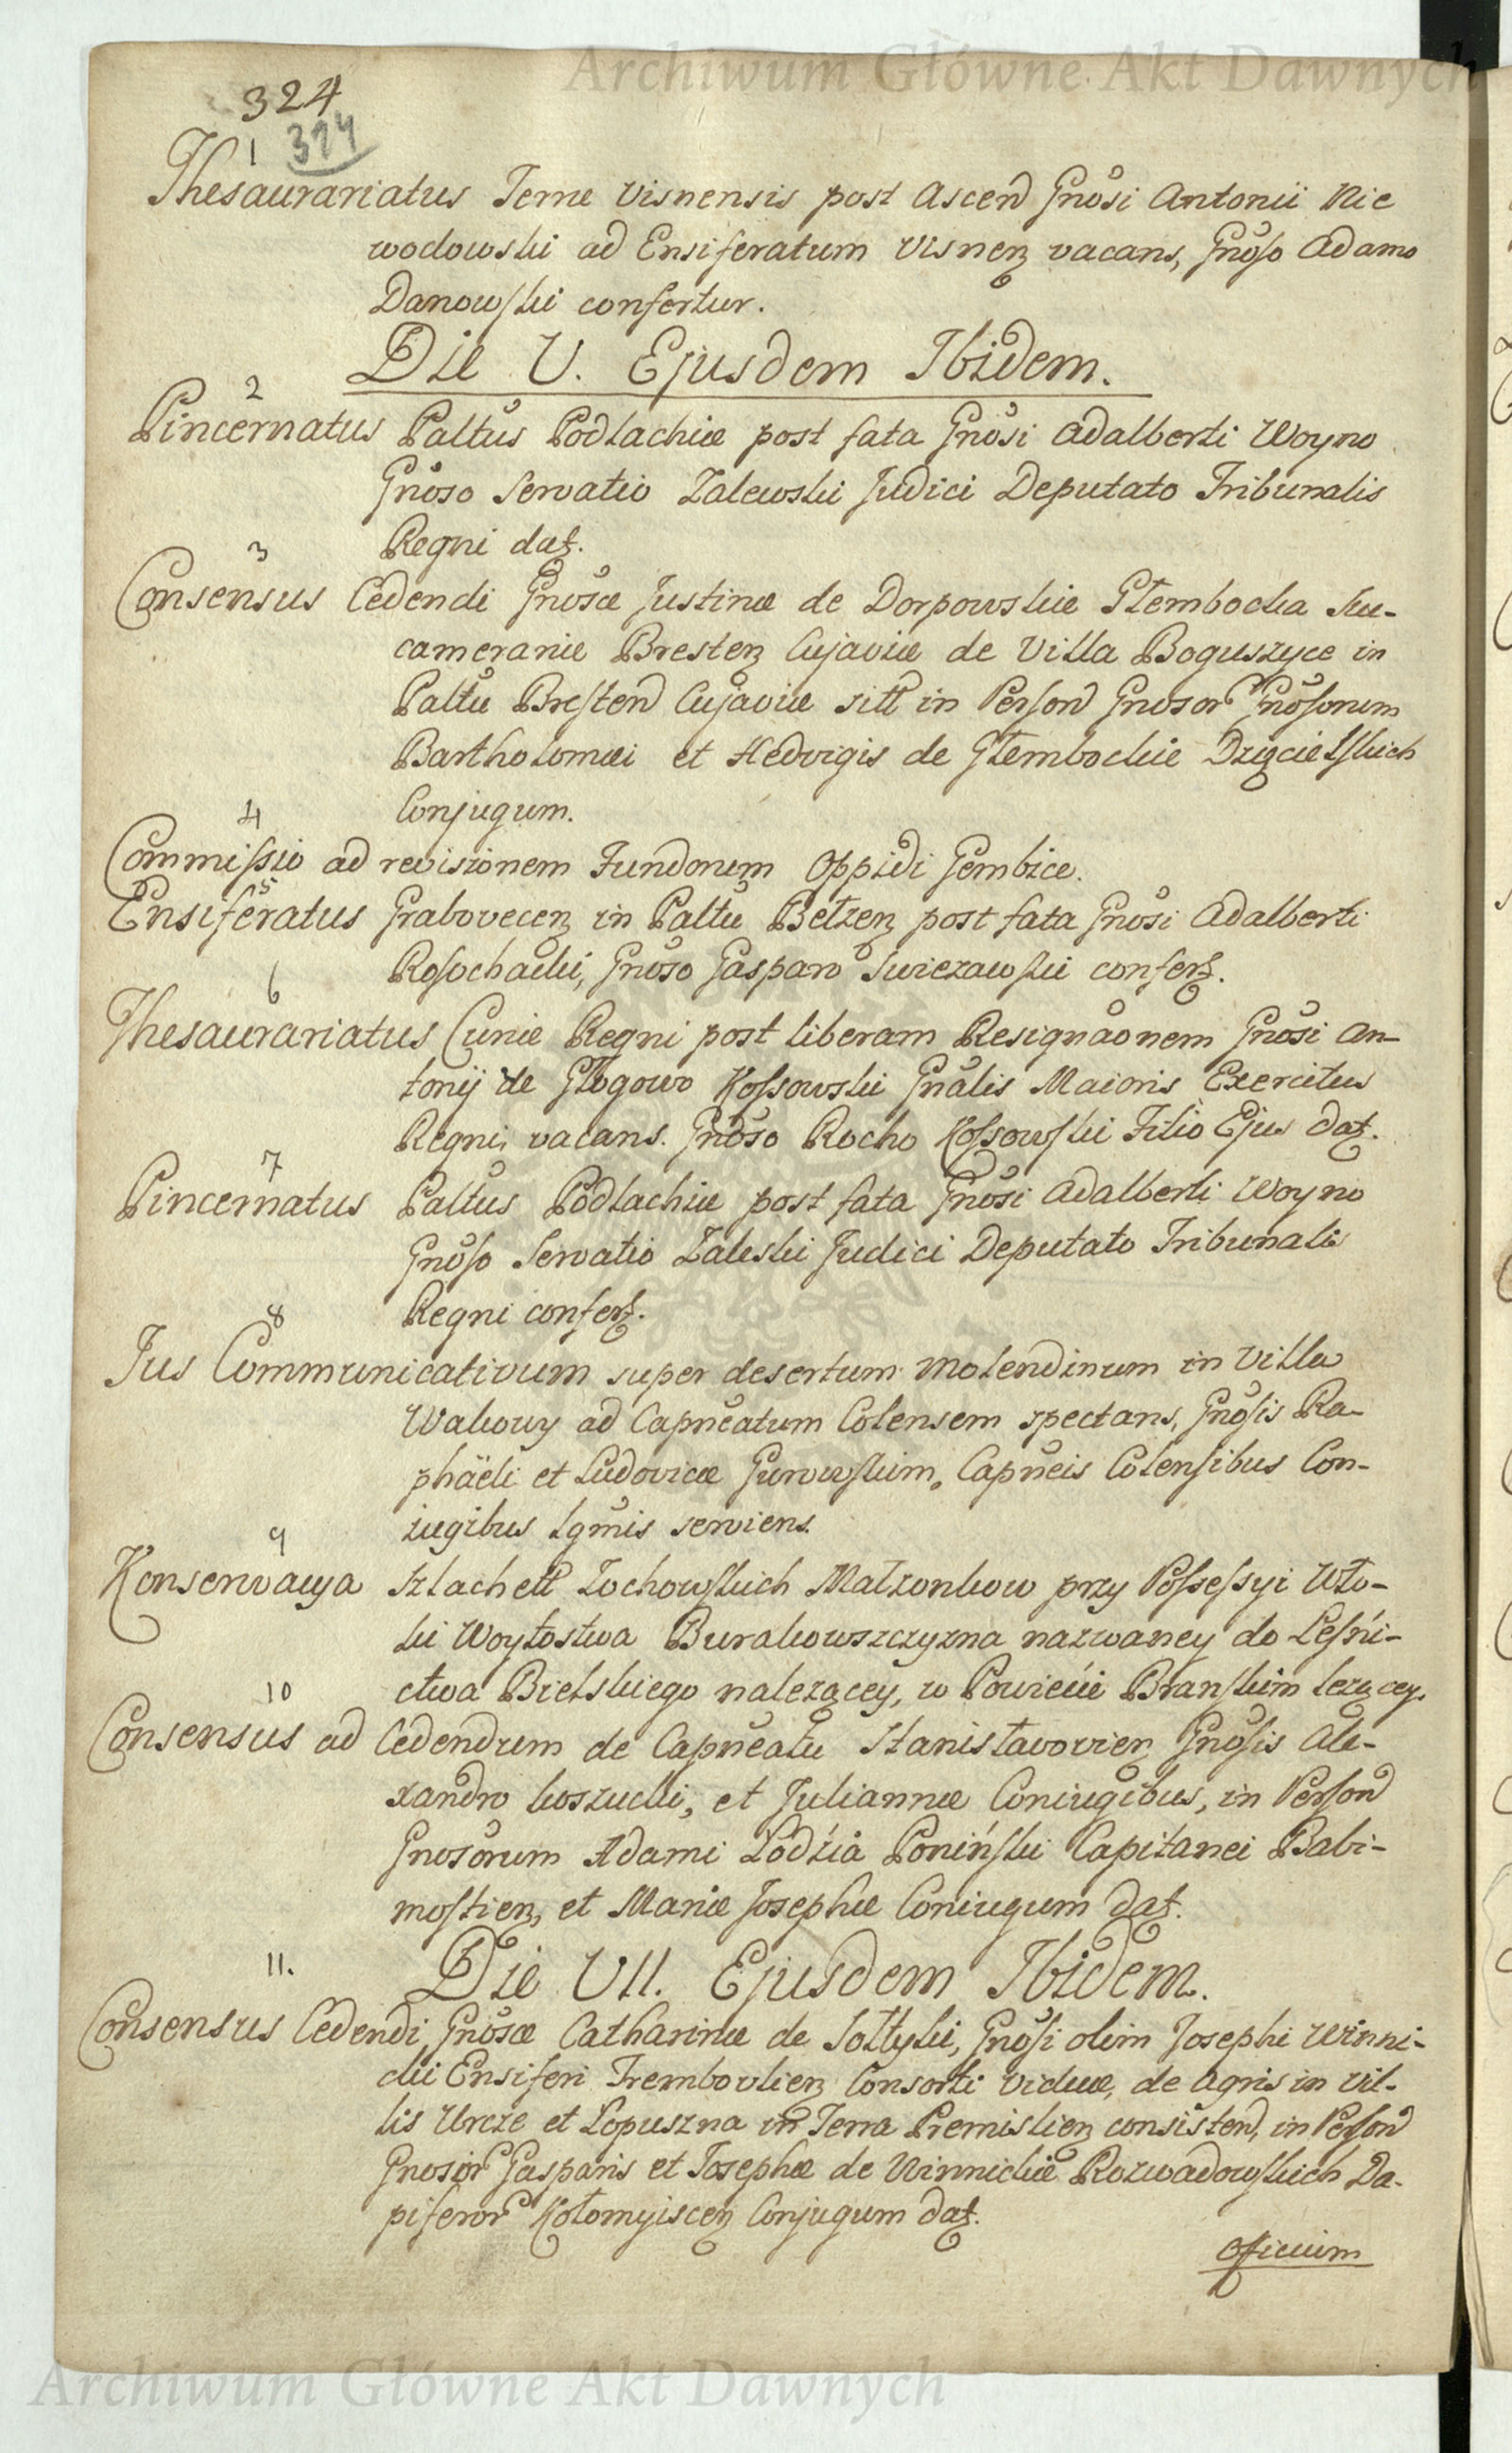 Archiwum Główne Akt Dawnych
324
314
1
Thesaurariatus Terræ Visnensis post Ascen͠d Gn͠osi Antonii Nie
wodowski ad Ensiferatum Visneȝ vacans, Gn͠oso Adamo
Danowski confertur.
Die V. Ejusdem Ibidem.
2
Pincernatus Pal͠tus Podlachiæ post fata Gn͠osi Adalberti Woyno
Gn͠oso Servatio Zalewski Judici Deputato Tribunalis
Regni datȝ.
3
Consensus Cedendi Gn͠osæ Justinæ de Dorpowskie Głembocka Suc-
cameraniæ Bresteȝ Cujaviæ de Villa Boguszyce in
Pal͠tu Bresten͠ Cujaviæ sitt in Person͠ Gnosor͠ Gn͠osorum
Bartholomæi et Hedvigis de Głembockie Dzięcielskich
Conjugum.
4
Commissio ad revisionem Fundorum Oppidi Gembice.
5
Ensiferatus Graboveceȝ in Pal͠tu Belzeȝ post fata Gn͠osi Adalberti
Rosochacki, Gn͠oso Gasparo Swiezawski conferȝ.
6
Thesaurariatus Curiæ Regni post liberam Resigna͠onem Gn͠osi An-
tonij de Głogowo Kossowski Gn͠alis Maioris Exercitus
Regni, vacans. Gn͠oso Rocho Kossowski Filio Ejus datȝ.
7
Pincernatus Pal͠tus Podlachiæ post fata Gn͠osi Adalberti Woyno
Gn͠oso Servatio Zaleski Judici Deputato Tribunalis
Regni conferȝ.
8
Jus Communicativum super desertum molendinum in Villa
Wakowy ad Capn͠eatum Colensem spectans, Gn͠osis Ra-
phäeli et Ludovicæ Gurowskim, Capn͠eis Colensibus Con-
iugibus Lg͠mis serviens.
9
Konserwacya Szlachett Zochowskich Małzonkow przy Possessyi Wło-
ki Woytostwa Burakowszczyzna nazwaney do Leśni-
ctwa Bielskiego nalezącey, w Powiećie Branskim lezącey.
10
Consensus ad Cedendum de Capn͠eatu Stanisławovieȝ Gn͠osis Ale-
xandro koszucki, et Juliannæ Coniugibus, in Person͠
Gnosorum Adami Łodzia Poniński Capitanei Babi-
mostieȝ, et Mariæ Josephæ Coniugum datȝ.
11.
Die VII. Ejusdem Ibidem.
Consensus Cedendi Gn͠osæ Catharinæ de Sołtyki, Gn͠osi olim Josephi Winni-
cki Ensiferi Trembovlieȝ Consorti viduæ, de Agris in vil-
lis Urcze et Lopuszna in Terra Premislieȝ consisten͠d, in Person͠
Gnosor͠ Gasparis et Josephæ de Winnickie Rozwadowskich Da-
piferor͠ Kołomyisceȝ Conjugum datȝ.
Officium
Archiwum Główne Akt Dawnych